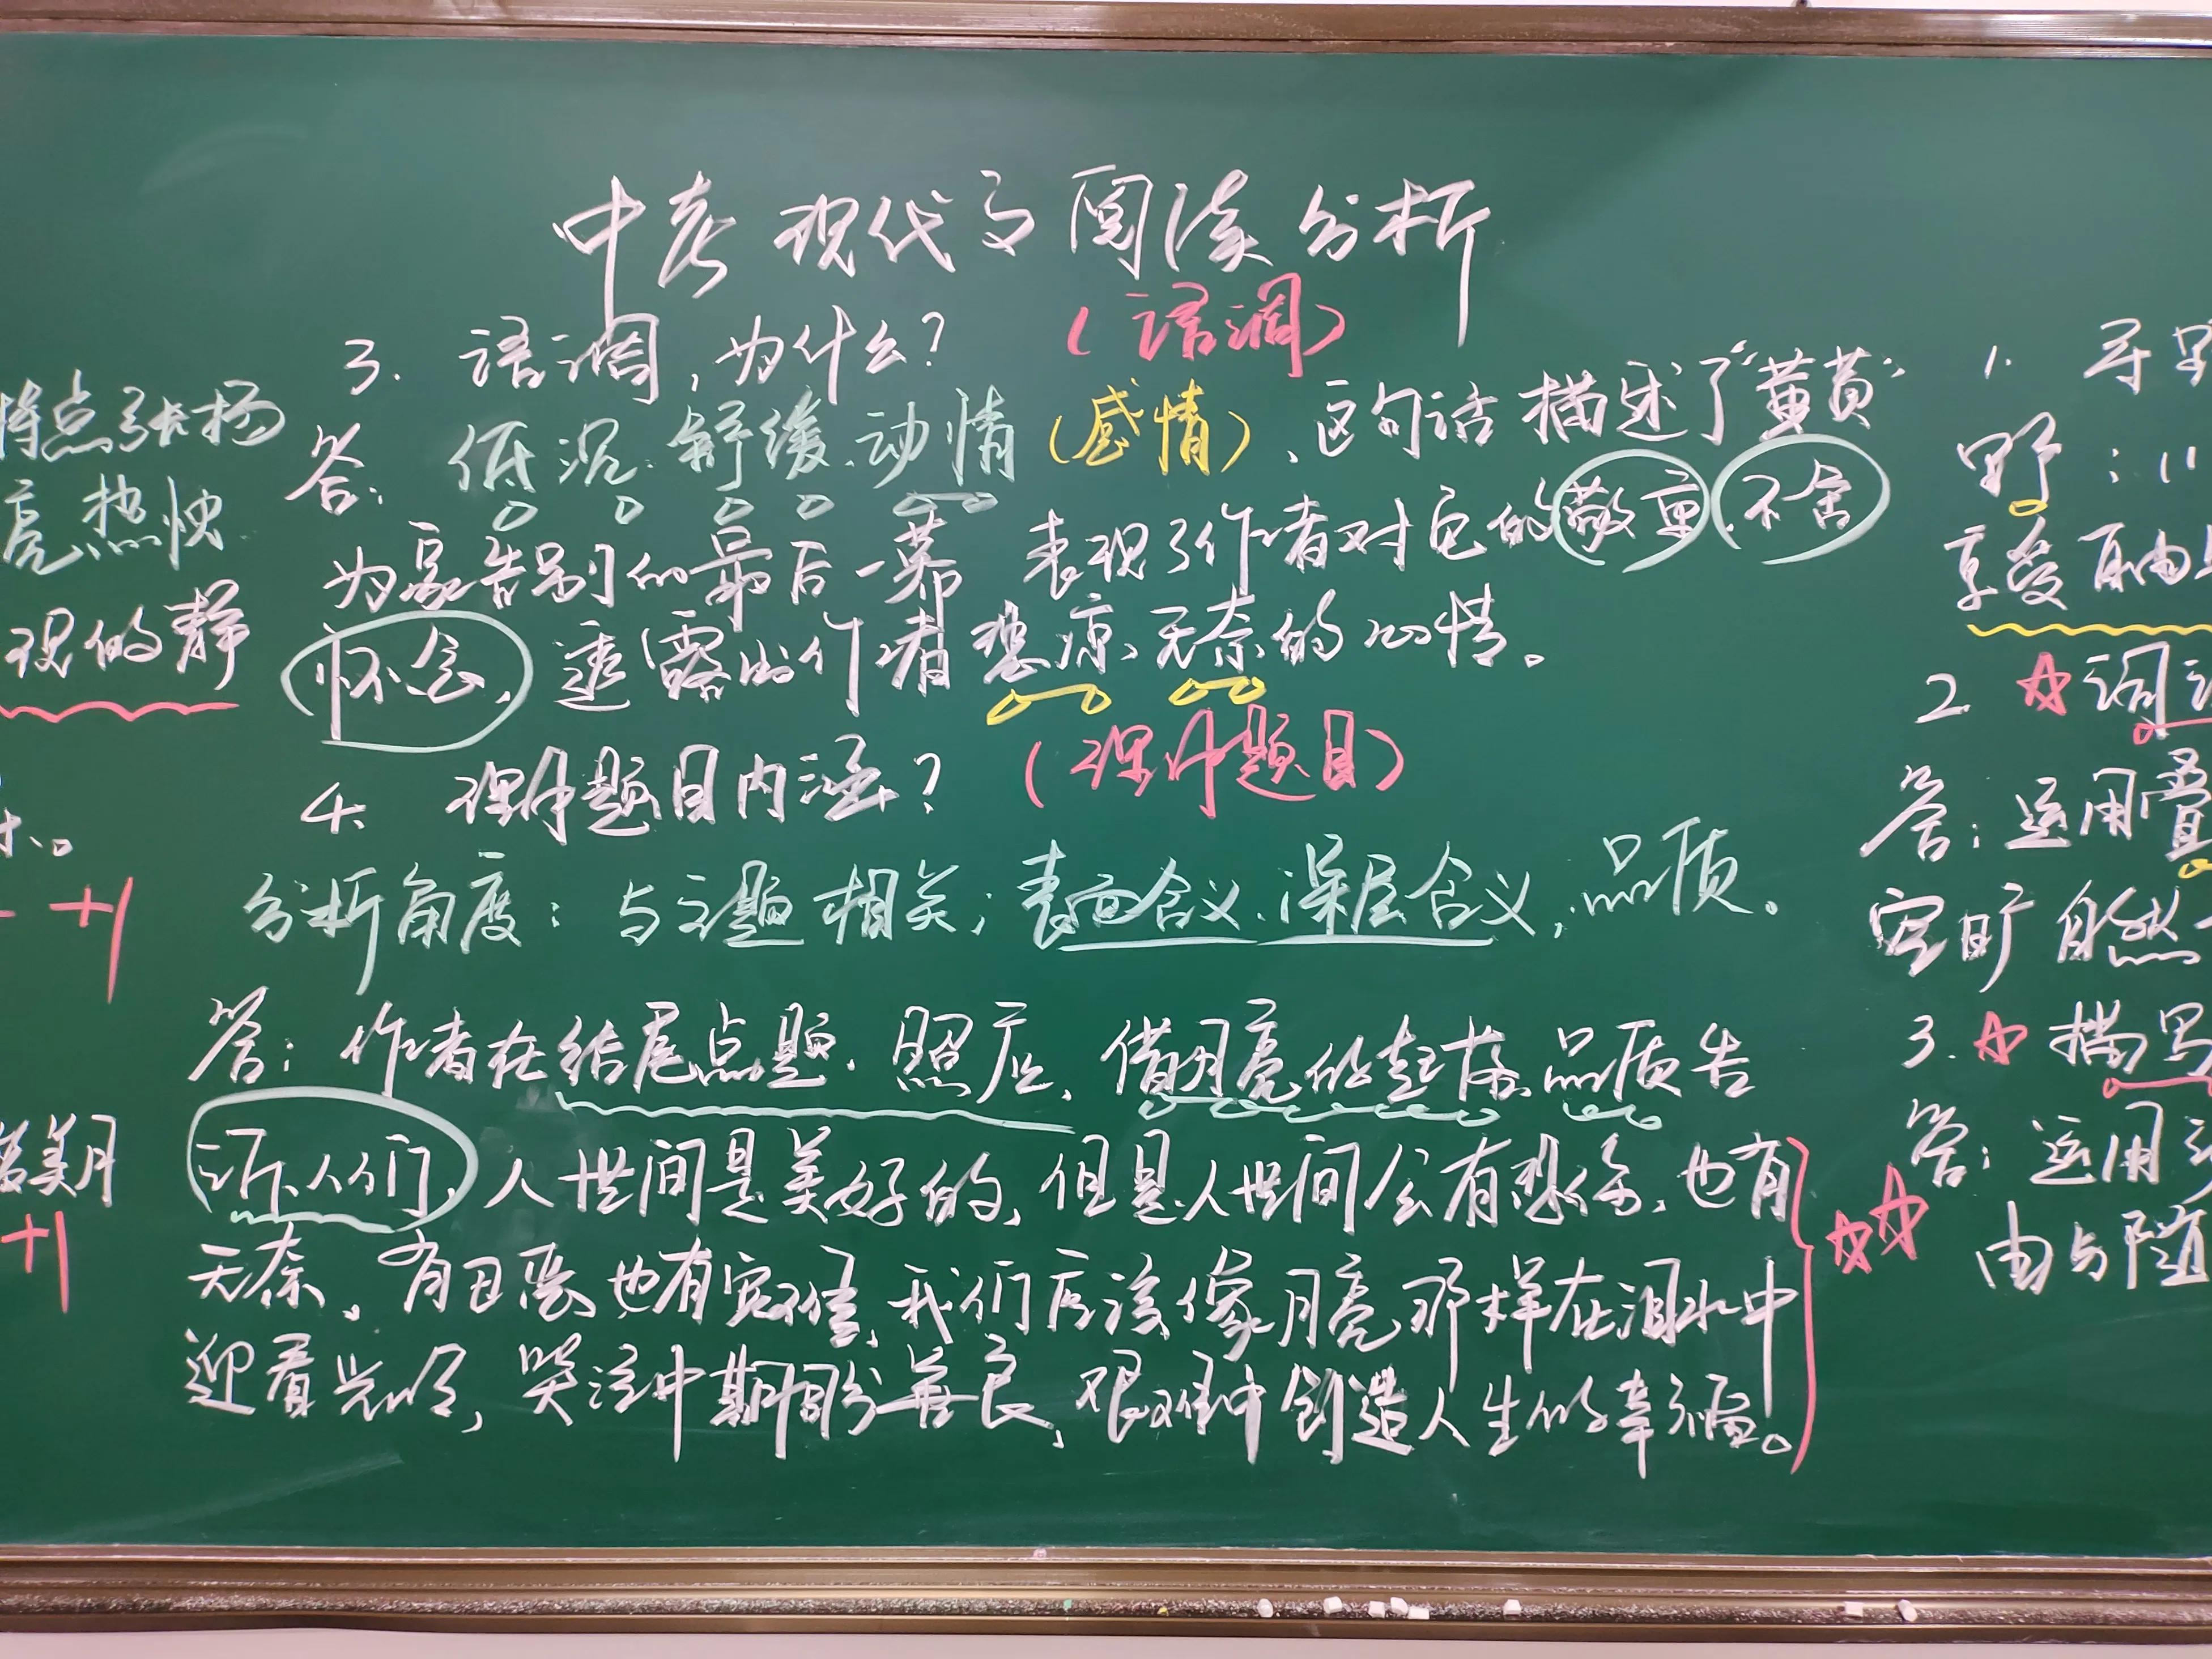 中考现代文阅读分析
3. 语调,为什么? (语调)
答: 低沉、舒缓、动情 (感情)、这句话描述了“黄黄”
为家告别的最后一幕 表现了作者对它的敬重、不舍
怀念, 透露出作者悲凉、无奈的心情。
4. 课外题目内涵? (课外题目)
分析角度: 与主题相关; 表面含义、深层含义, 品质。
答: 作者在结尾点题、照应, 借月亮的起落、品质告
诉人们, 人世间是美好的, 但是人世间会有悲伤, 也有
无奈, 有丑恶也有, 我们应该像月亮那样在泪水中
迎着光明, 哭泣中期盼善良, 艰难中创造人生的幸福。
特点张扬
亮、热
现的静
+1
+1
1. 寻
野: "
享受
2. ☆ 词
答: 运用叠
空旷 自然
3. ☆ 描写
答: 运用
由与随